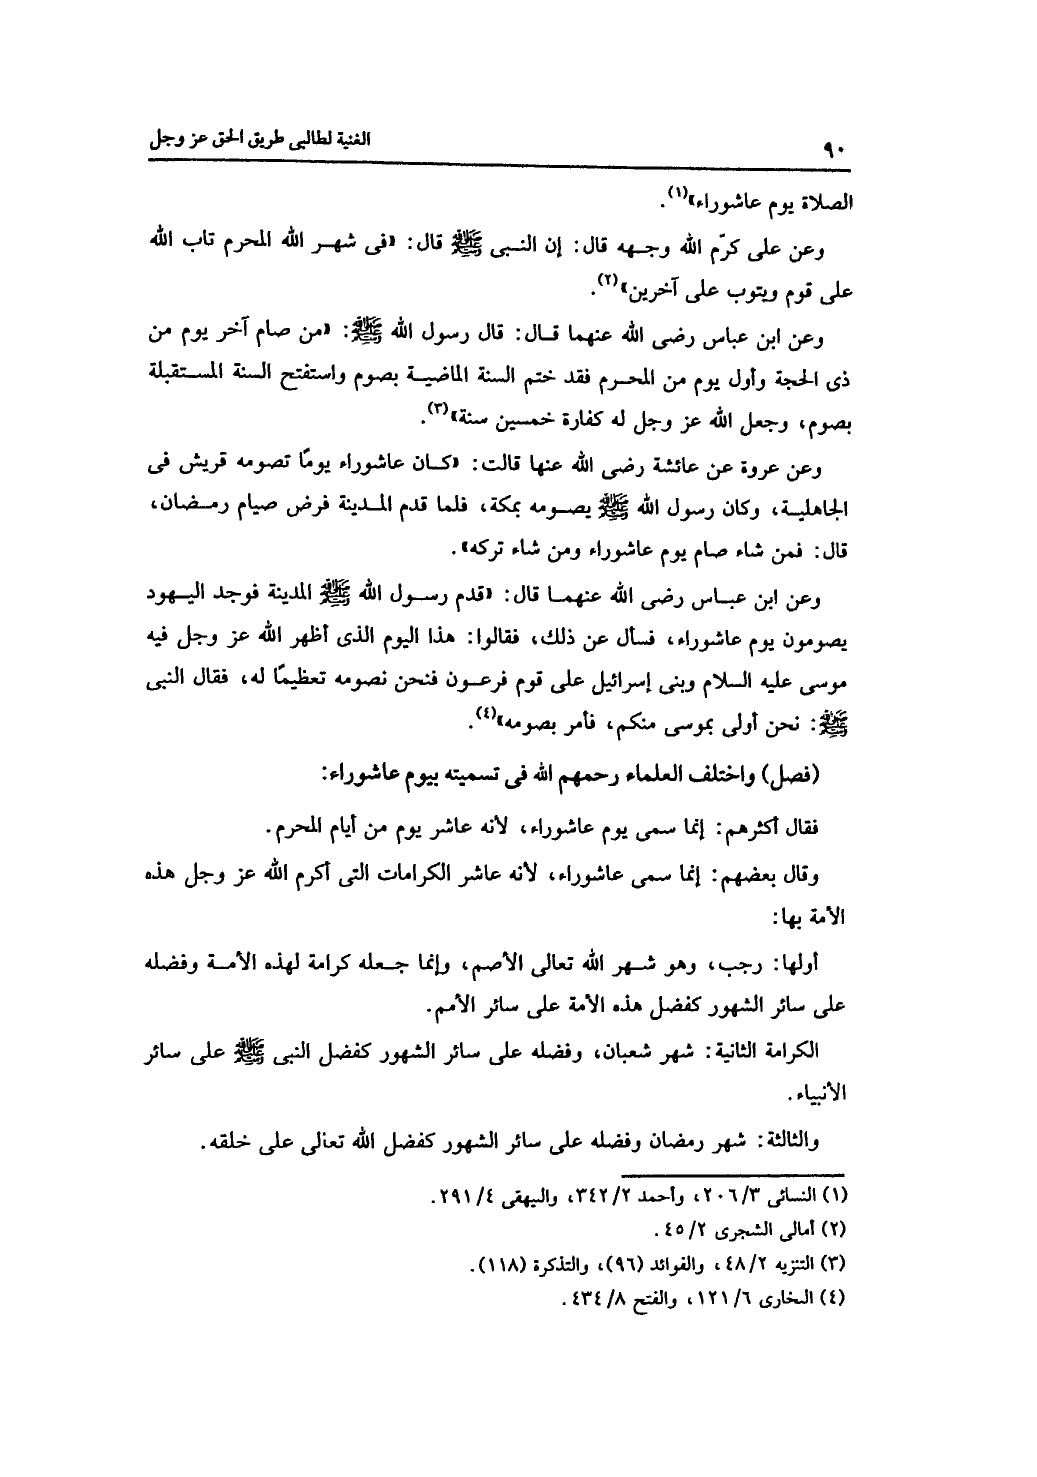 ٩٠ الغنية لطالبى طريق الحق عز وجل
الصلاة يوم عاشوراء»(١).
وعن على كرّم الله وجهه قال: إن النبى ﷺ قال: «فى شهر الله المحرم تاب الله
على قوم ويتوب على آخرين»(٢).
وعن ابن عباس رضى الله عنهما قال: قال رسول الله ﷺ: «من صام آخر يوم من
ذى الحجة وأول يوم من المحرم فقد ختم السنة الماضية بصوم واستفتح السنة المستقبلة
بصوم، وجعل الله عز وجل له كفارة خمسين سنة»(٣).
وعن عروة عن عائشة رضى الله عنها قالت: «كان عاشوراء يومًا تصومه قريش فى
الجاهلية، وكان رسول الله ﷺ يصومه بمكة، فلما قدم المدينة فرض صيام رمضان،
قال: فمن شاء صام يوم عاشوراء ومن شاء تركه».
وعن ابن عباس رضى الله عنهما قال: «قدم رسول الله ﷺ المدينة فوجد اليهود
يصومون يوم عاشوراء، فسأل عن ذلك، فقالوا: هذا اليوم الذى أظهر الله عز وجل فيه
موسى عليه السلام وبنى إسرائيل على قوم فرعون فنحن نصومه تعظيمًا له، فقال النبى
ﷺ: نحن أولى بموسى منكم، فأمر بصومه»(٤).
(فصل) واختلف العلماء رحمهم الله فى تسميته بيوم عاشوراء:
فقال أكثرهم: إنما سمى يوم عاشوراء، لأنه عاشر يوم من أيام المحرم.
وقال بعضهم: إنما سمى عاشوراء، لأنه عاشر الكرامات التى أكرم الله عز وجل هذه
الأمة بها:
أولها: رجب، وهو شهر الله تعالى الأصم، وإنما جعله كرامة لهذه الأمة وفضله
على سائر الشهور كفضل هذه الأمة على سائر الأمم.
الكرامة الثانية: شهر شعبان، وفضله على سائر الشهور كفضل النبى ﷺ على سائر
الأنبياء.
والثالثة: شهر رمضان وفضله على سائر الشهور كفضل الله تعالى على خلقه.
(١) النسائى ٢٠٦/٣، وأحمد ٣٤٢/٢، والبيهقى ٢٩١/٤.
(٢) أمالى الشجرى ٤٥/٢.
(٣) التنزيه ٤٨/٢، والفوائد (٩٦)، والتذكرة (١١٨).
(٤) البخارى ١٢١/٦، والفتح ٤٣٤/٨.